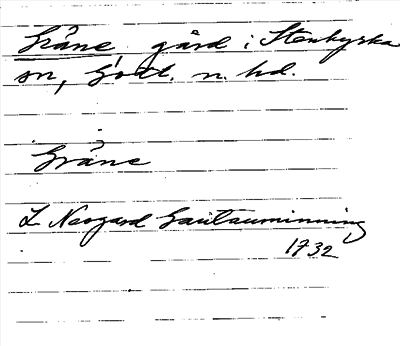 Gråne, gård i Stenkyrka
sn, Gotl. n. hd.
Gråne
L Neogard Gautauminning
1732